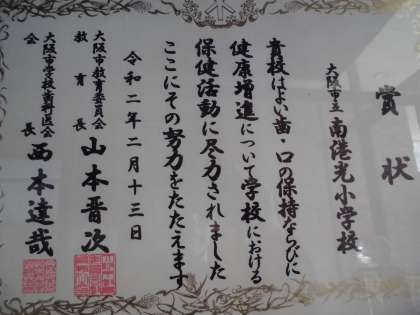 賞状
大阪市立 南港光小学校
貴校はよい歯・口の保持ならびに
健康増進について学校における
保健活動に尽力されました
ここにその努力をたたえます
令和二年二月十三日
大阪市教育委員会
教育長 山本晋次
大阪市学校歯科医会
会長 西本達哉